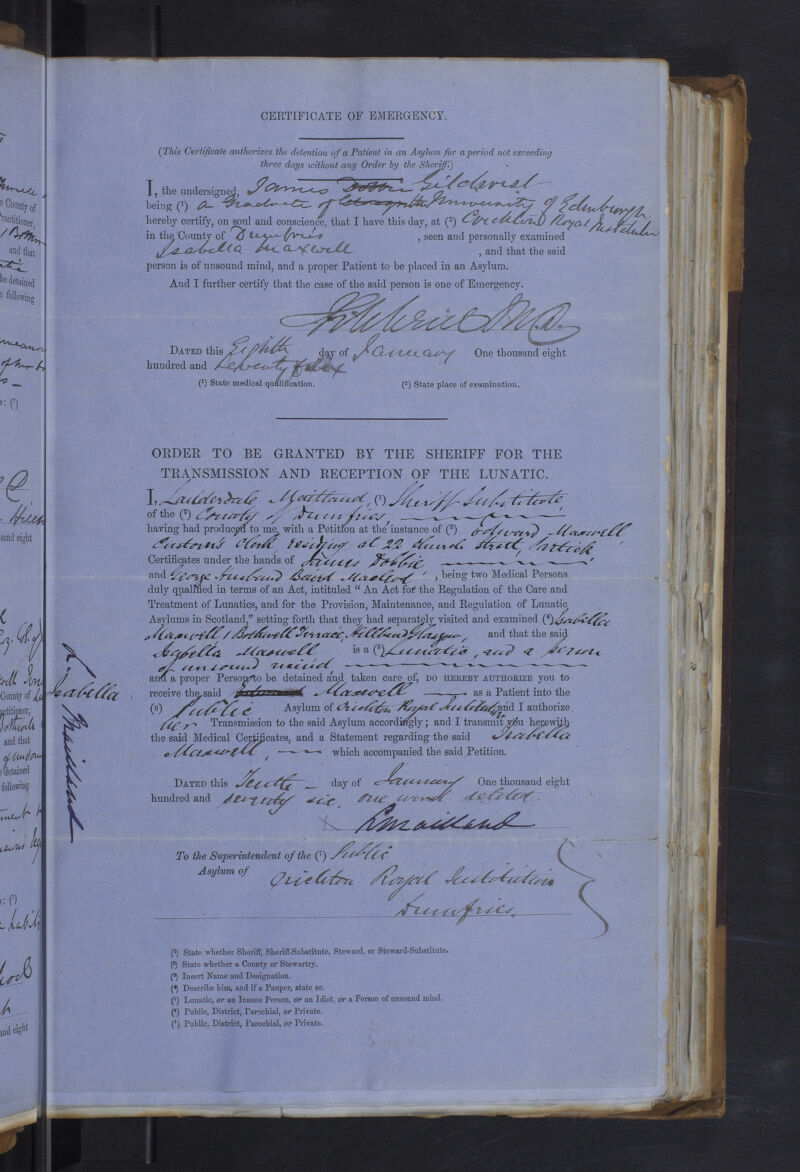 CERTIFICATE OF EMERGENCY.
(This Certificate authorizes the detention of a Patient in an Asylum for a period not exceeding
three days without any Order by the Sheriff.)
I, the undersigned, James Dobbie Gilchrist
being (¹) a Graduate of University of Edenburgh
hereby certify, on soul and conscience, that I have this day, at (²) Crichton Royal Institution
in the County of Dumfries , seen and personally examined
Isabella Maxwell , and that the said
person is of unsound mind, and a proper Patient to be placed in an Asylum.
And I further certify that the case of the said person is one of Emergency.
J Gilchrist M.D.
DATED this Eighth day of January One thousand eight
hundred and seventy six
(¹) State medical qualification. (²) State place of examination.
ORDER TO BE GRANTED BY THE SHERIFF FOR THE
TRANSMISSION AND RECEPTION OF THE LUNATIC.
I, Lauderdale Maitland, (¹) Sheriff Substitute
of the (²) County of Dumfries,
having had produced to me, with a Petition at the instance of (³) Edward Maxwell
Customs Clerk residing at 22 Church Street, Partick
Certificates under the hands of James Dobbie
and George Husband Baird Macleod , being two Medical Persons
duly qualified in terms of an Act, intituled “ An Act for the Regulation of the Care and
Treatment of Lunatics, and for the Provision, Maintenance, and Regulation of Lunatic
Asylums in Scotland,” setting forth that they had separately visited and examined (⁴) Isabella
Maxwell 1 Bothwell Terrace, Hillhead Glasgow, and that the said
Isabella Maxwell is a (⁵) Lunatic, and a person
of unsound mind
and a proper Person to be detained and taken care of, DO HEREBY AUTHORIZE you to
receive the said Edward Maxwell as a Patient into the
(⁶) Public Asylum of Crichton Royal Institution and I authorize
her Transmission to the said Asylum accordingly; and I transmit you herewith
the said Medical Certificates, and a Statement regarding the said Isabella
Maxwell, which accompanied the said Petition.
Isabella
DATED this Tenth day of January One thousand eight
hundred and seventy six. one word deleted.
X LMaitland
To the Superintendent of the (⁷) Public
Asylum of Crichton Royal Institution
Dumfries.
(¹) State whether Sheriff, Sheriff-Substitute, Steward, or Steward-Substitute.
(²) State whether a County or Stewartry.
(³) Insert Name and Designation.
(⁴) Describe him, and if a Pauper, state so.
(⁵) Lunatic, or an Insane Person, or an Idiot, or a Person of unsound mind.
(⁶) Public, District, Parochial, or Private.
(⁷) Public, District, Parochial, or Private.